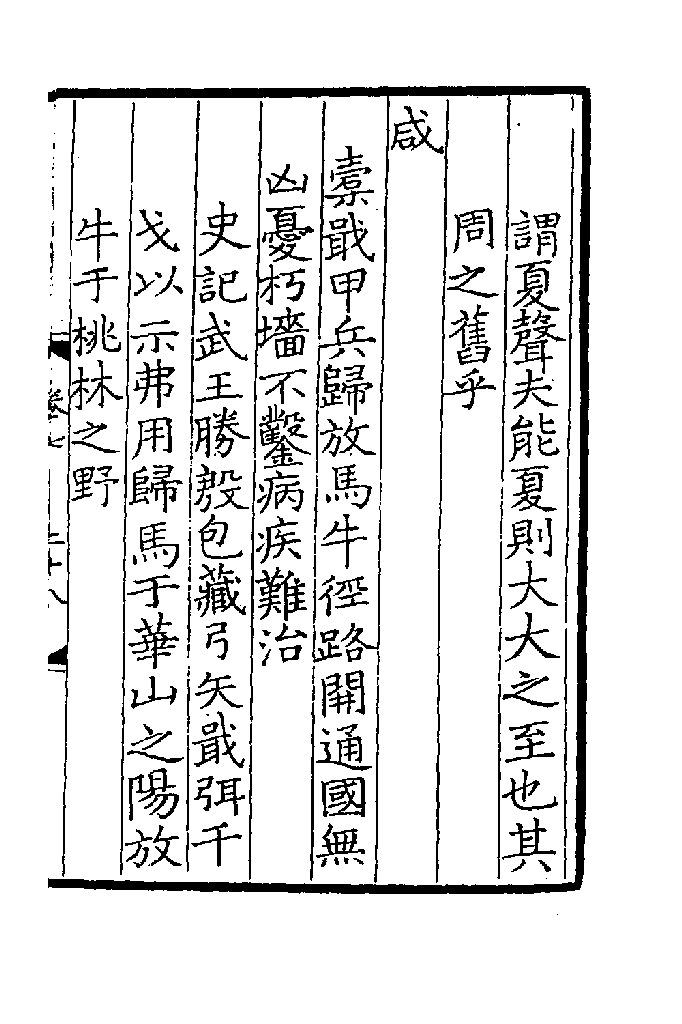 謂夏聲夫能夏則大大之至也其
周之舊乎
咸
櫜戢甲兵歸放馬牛徑路開通國無
凶憂朽墻不鑿病疾難治
史記武王勝殷包藏弓矢戢弭干
戈以示弗用歸馬于華山之陽放
牛于桃林之野
卷七
二十八